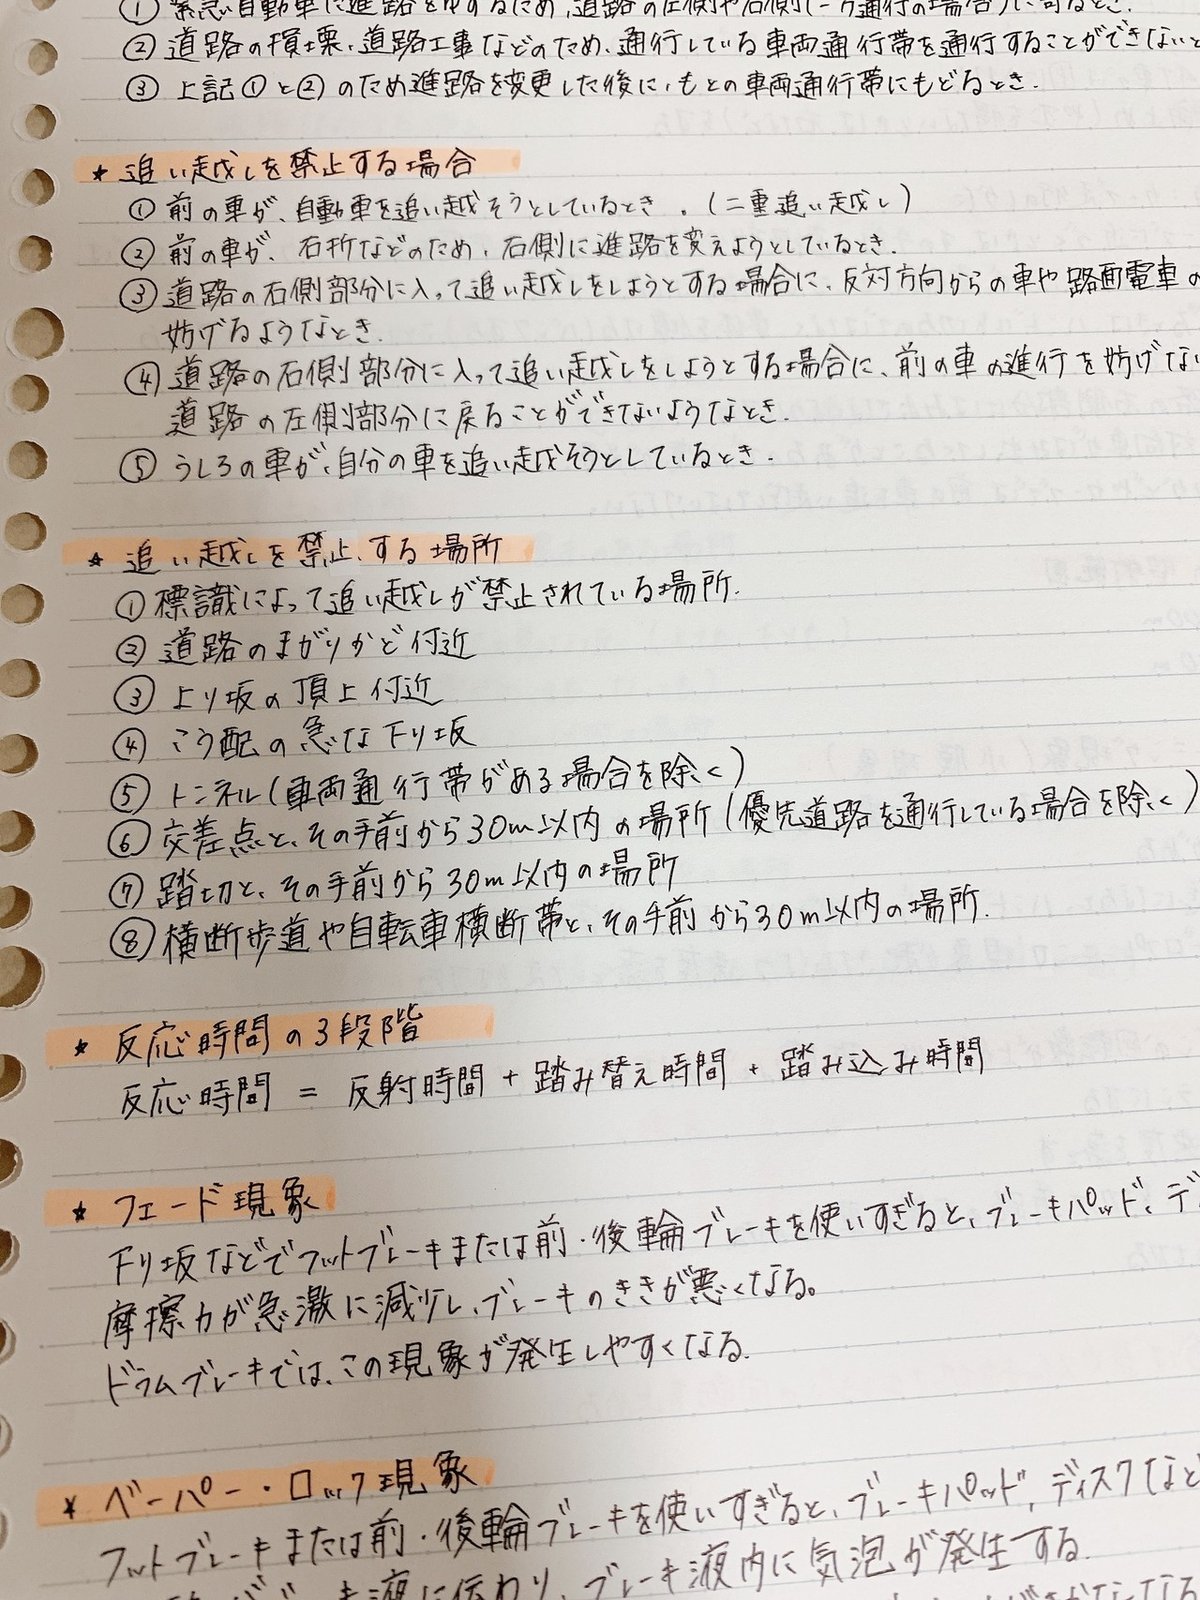 ① 緊急自動車に進路をゆずるため、道路の左側や右側(一方通行の場合)に寄るとき.
② 道路の損壊、道路工事などのため、通行している車両通行帯を通行することができないと
③ 上記①と②のため進路を変更した後に、もとの車両通行帯にもどるとき.
★ 追い越しを禁止する場合
① 前の車が、自動車を追い越そうとしているとき.(二重追い越し)
② 前の車が、右折などのため、右側に進路を変えようとしているとき.
③ 道路の右側部分に入って追い越しをしようとする場合に、反対方向からの車や路面電車の
妨げるようなとき.
④ 道路の右側部分に入って追い越しをしようとする場合に、前の車の進行を妨げない
道路の左側部分に戻ることができないようなとき.
⑤ うしろの車が、自分の車を追い越そうとしているとき.
★ 追い越しを禁止する場所
① 標識によって追い越しが禁止されている場所.
② 道路のまがりかど付近
③ 上り坂の頂上付近
④ こう配の急な下り坂
⑤ トンネル(車両通行帯がある場合を除く)
⑥ 交差点と、その手前から30m以内の場所(優先道路を通行している場合を除く)
⑦ 踏切と、その手前から30m以内の場所
⑧ 横断歩道や自転車横断帯と、その手前から30m以内の場所.
★ 反応時間の3段階
反応時間 = 反射時間 + 踏み替え時間 + 踏み込み時間
★ フェード現象
下り坂などでフットブレーキまたは前・後輪ブレーキを使いすぎると、ブレーキパッド、デ
摩擦力が急激に減少し、ブレーキのききが悪くなる。
ドラムブレーキでは、この現象が発生しやすくなる.
★ ベーパー・ロック現象
フットブレーキまたは前・後輪ブレーキを使いすぎると、ブレーキパッド、ディスクなど
ブレーキ液に伝わり、ブレーキ液内に気泡が発生する.